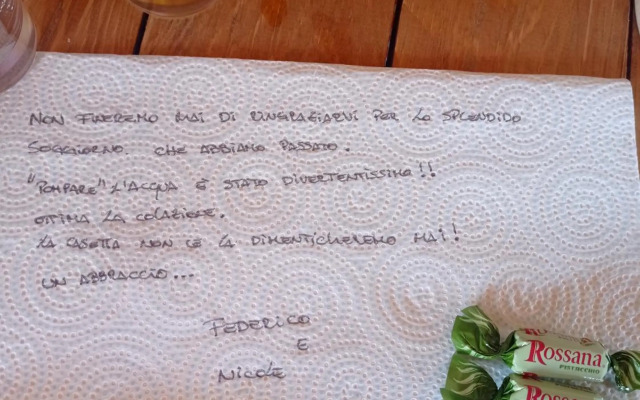 NON FINEREMO MAI DI RINGRAZIARVI PER LO SPLENDIDO
SOGGIORNO CHE ABBIAMO PASSATO.
"POMPARE" L'ACQUA È STATO DIVERTENTISSIMO!!
OTTIMA LA COLAZIONE.
LA CASETTA NON CE LA DIMENTICHEREMO MAI!
UN ABBRACCIO...
FEDERICO
E
NICOLE
Rossana
PISTACCHIO
Rossana